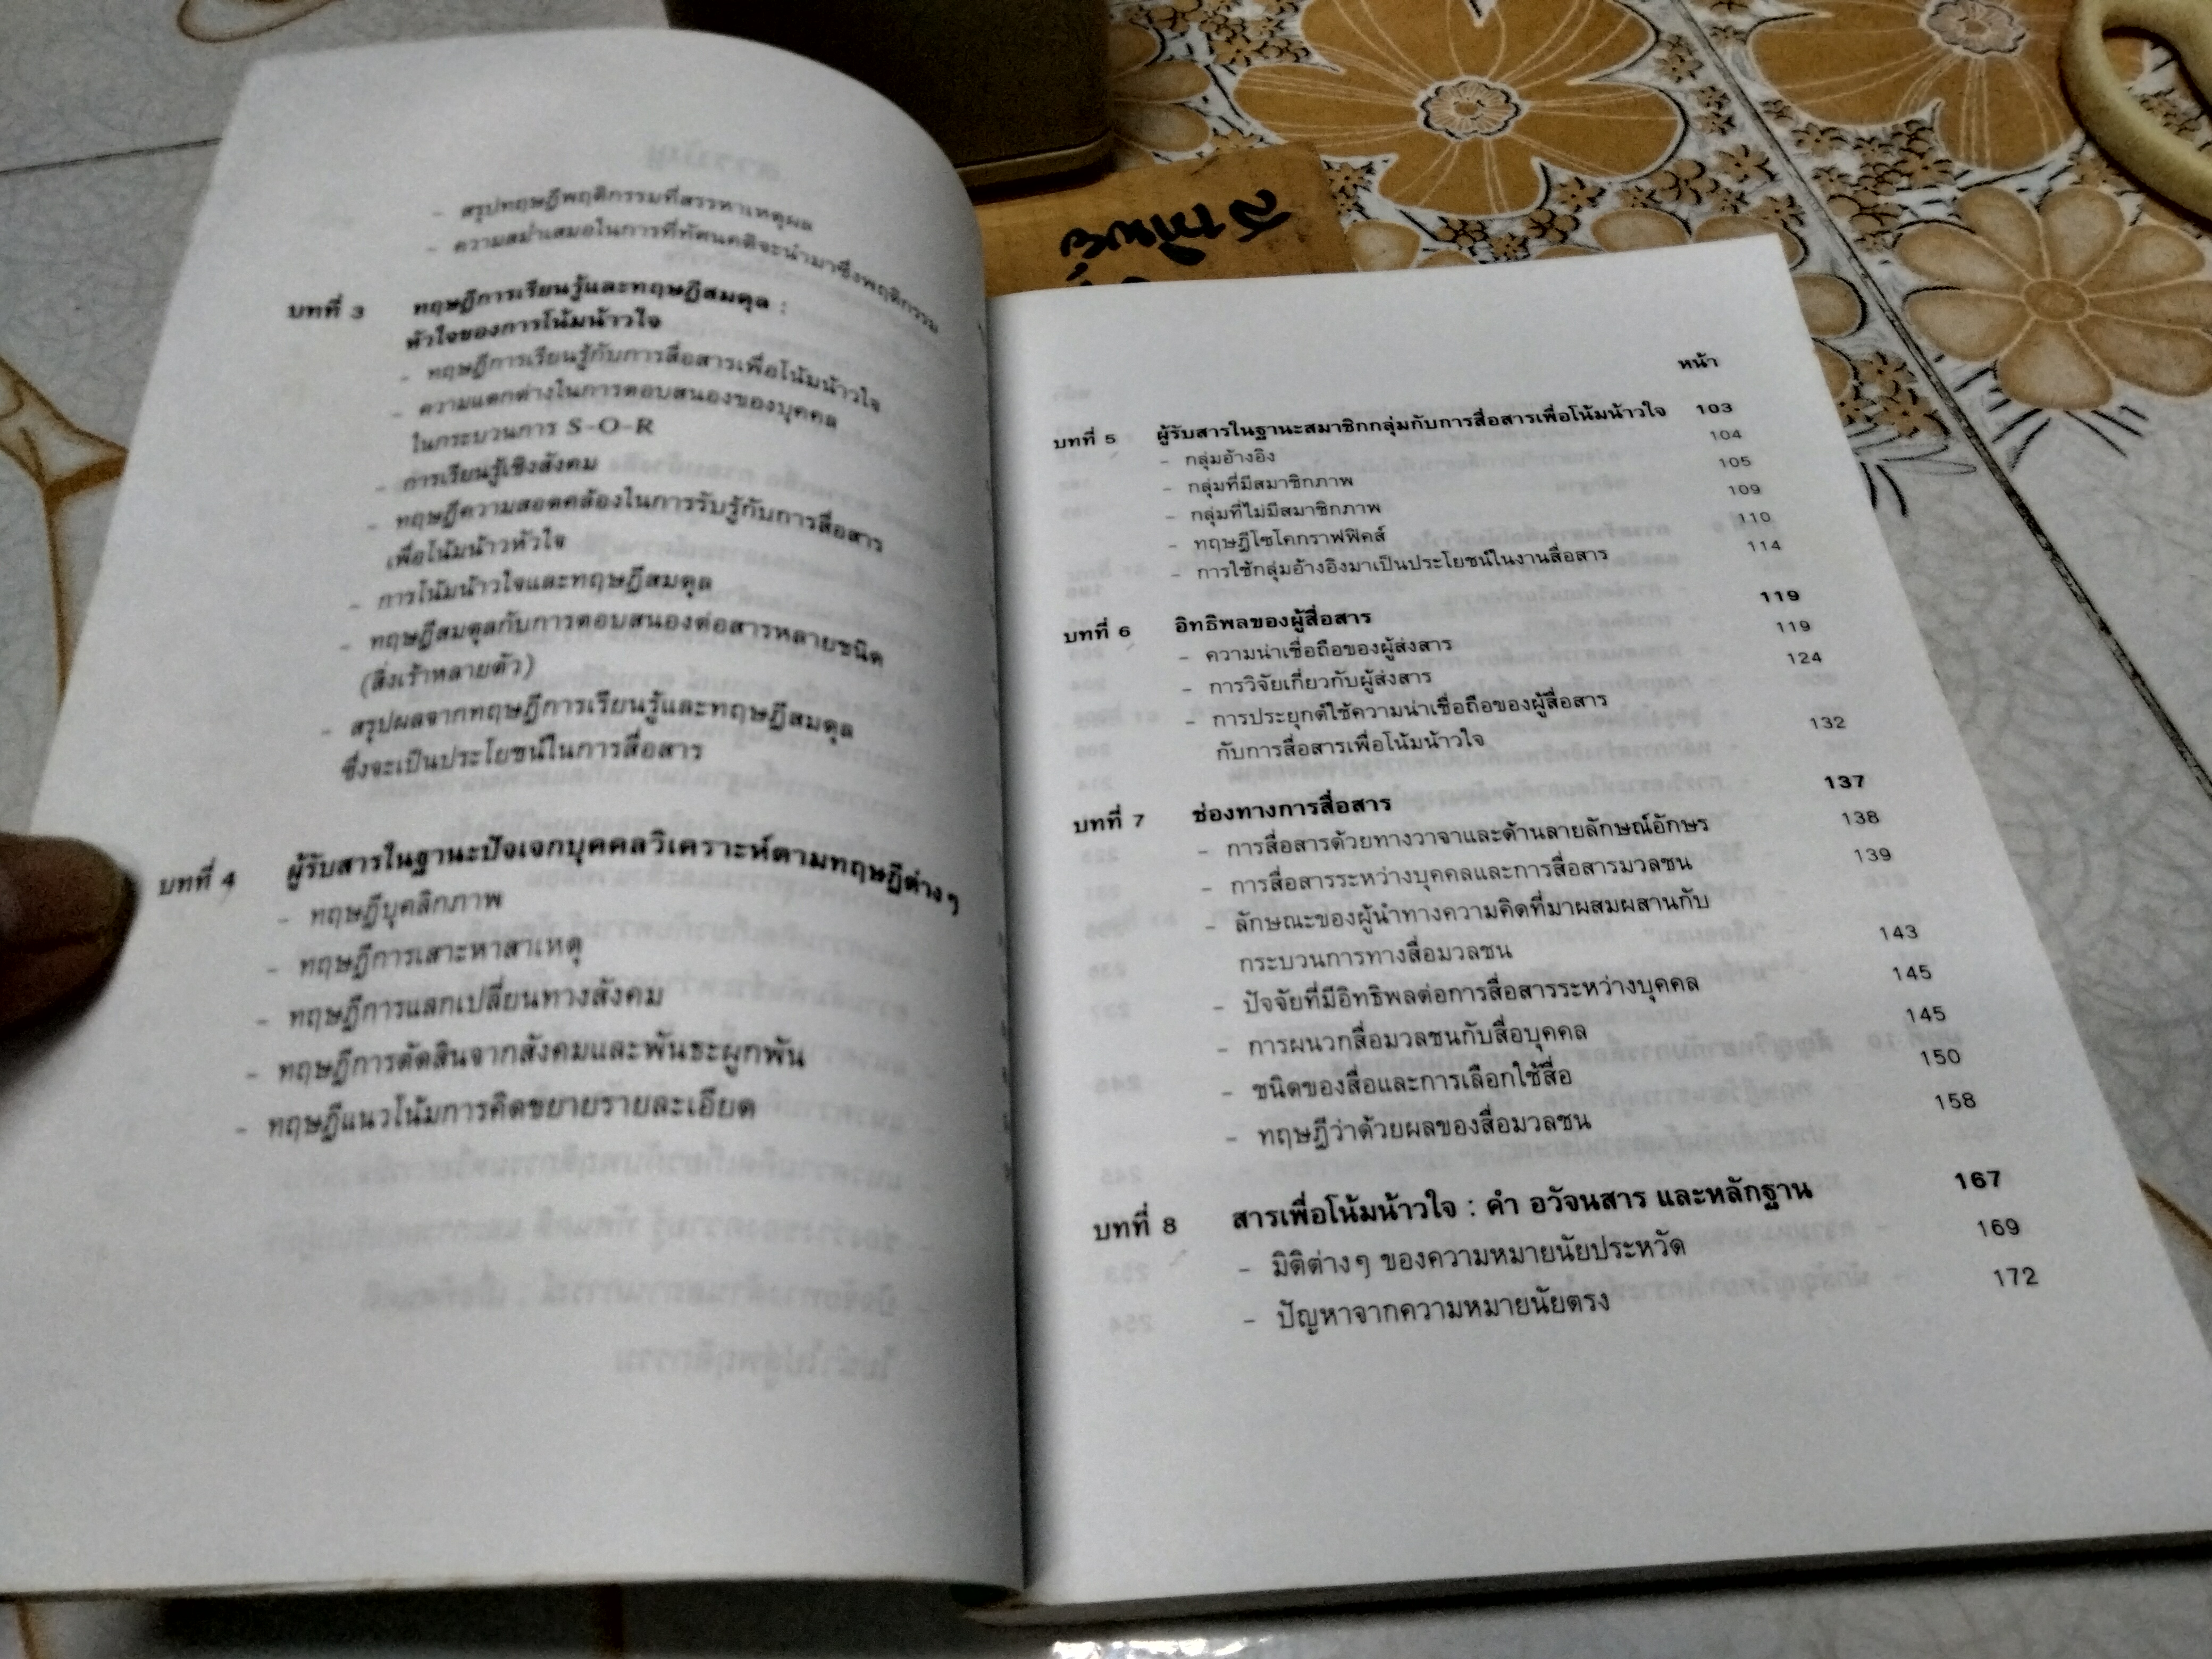 - สรุปทฤษฎีพฤติกรรมที่สรรหาเหตุผล
- ความสม่ำเสมอในการที่ทัศนคติจะนำมาซึ่งพฤติกรรม
บทที่ 3 ทฤษฎีการเรียนรู้และทฤษฎีสมดุล :
หัวใจของการโน้มน้าวใจ
- ทฤษฎีการเรียนรู้กับการสื่อสารเพื่อโน้มน้าวใจ
- ความแตกต่างในการตอบสนองของบุคคล
ในกระบวนการ S-O-R
- การเรียนรู้เชิงสังคม
- ทฤษฎีความสอดคล้องในการรับรู้กับการสื่อสาร
เพื่อโน้มน้าวหัวใจ
- การโน้มน้าวใจและทฤษฎีสมดุล
- ทฤษฎีสมดุลกับการตอบสนองต่อสารหลายชนิด
(สิ่งเร้าหลายตัว)
- สรุปผลจากทฤษฎีการเรียนรู้และทฤษฎีสมดุล
ซึ่งจะเป็นประโยชน์ในการสื่อสาร
บทที่ 4 ผู้รับสารในฐานะปัจเจกบุคคลวิเคราะห์ตามทฤษฎีต่างๆ
- ทฤษฎีบุคลิกภาพ
- ทฤษฎีการเสาะหาสาเหตุ
- ทฤษฎีการแลกเปลี่ยนทางสังคม
- ทฤษฎีการตัดสินจากสังคมและพันธะผูกพัน
- ทฤษฎีแนวโน้มการคิดขยายรายละเอียด
หน้า
บทที่ 5 ผู้รับสารในฐานะสมาชิกกลุ่มกับการสื่อสารเพื่อโน้มน้าวใจ 103
- กลุ่มอ้างอิง 104
- กลุ่มที่มีสมาชิกภาพ 105
- กลุ่มที่ไม่มีสมาชิกภาพ 109
- ทฤษฎีโซโคกราฟฟิคส์ 110
- การใช้กลุ่มอ้างอิงมาเป็นประโยชน์ในงานสื่อสาร 114
บทที่ 6 อิทธิพลของผู้สื่อสาร 119
- ความน่าเชื่อถือของผู้ส่งสาร 119
- การวิจัยเกี่ยวกับผู้ส่งสาร 124
- การประยุกต์ใช้ความน่าเชื่อถือของผู้สื่อสาร
กับการสื่อสารเพื่อโน้มน้าวใจ 132
บทที่ 7 ช่องทางการสื่อสาร 137
- การสื่อสารด้วยทางวาจาและด้านลายลักษณ์อักษร 138
- การสื่อสารระหว่างบุคคลและการสื่อสารมวลชน 139
- ลักษณะของผู้นำทางความคิดที่มาผสมผสานกับ
กระบวนการทางสื่อมวลชน 143
- ปัจจัยที่มีอิทธิพลต่อการสื่อสารระหว่างบุคคล 145
- การผนวกสื่อมวลชนกับสื่อบุคคล 145
- ชนิดของสื่อและการเลือกใช้สื่อ 150
- ทฤษฎีว่าด้วยผลของสื่อมวลชน 158
บทที่ 8 สารเพื่อโน้มน้าวใจ : คำ อวัจนสาร และหลักฐาน 167
- มิติต่างๆ ของความหมายนัยประหวัด 169
- ปัญหาจากความหมายนัยตรง 172